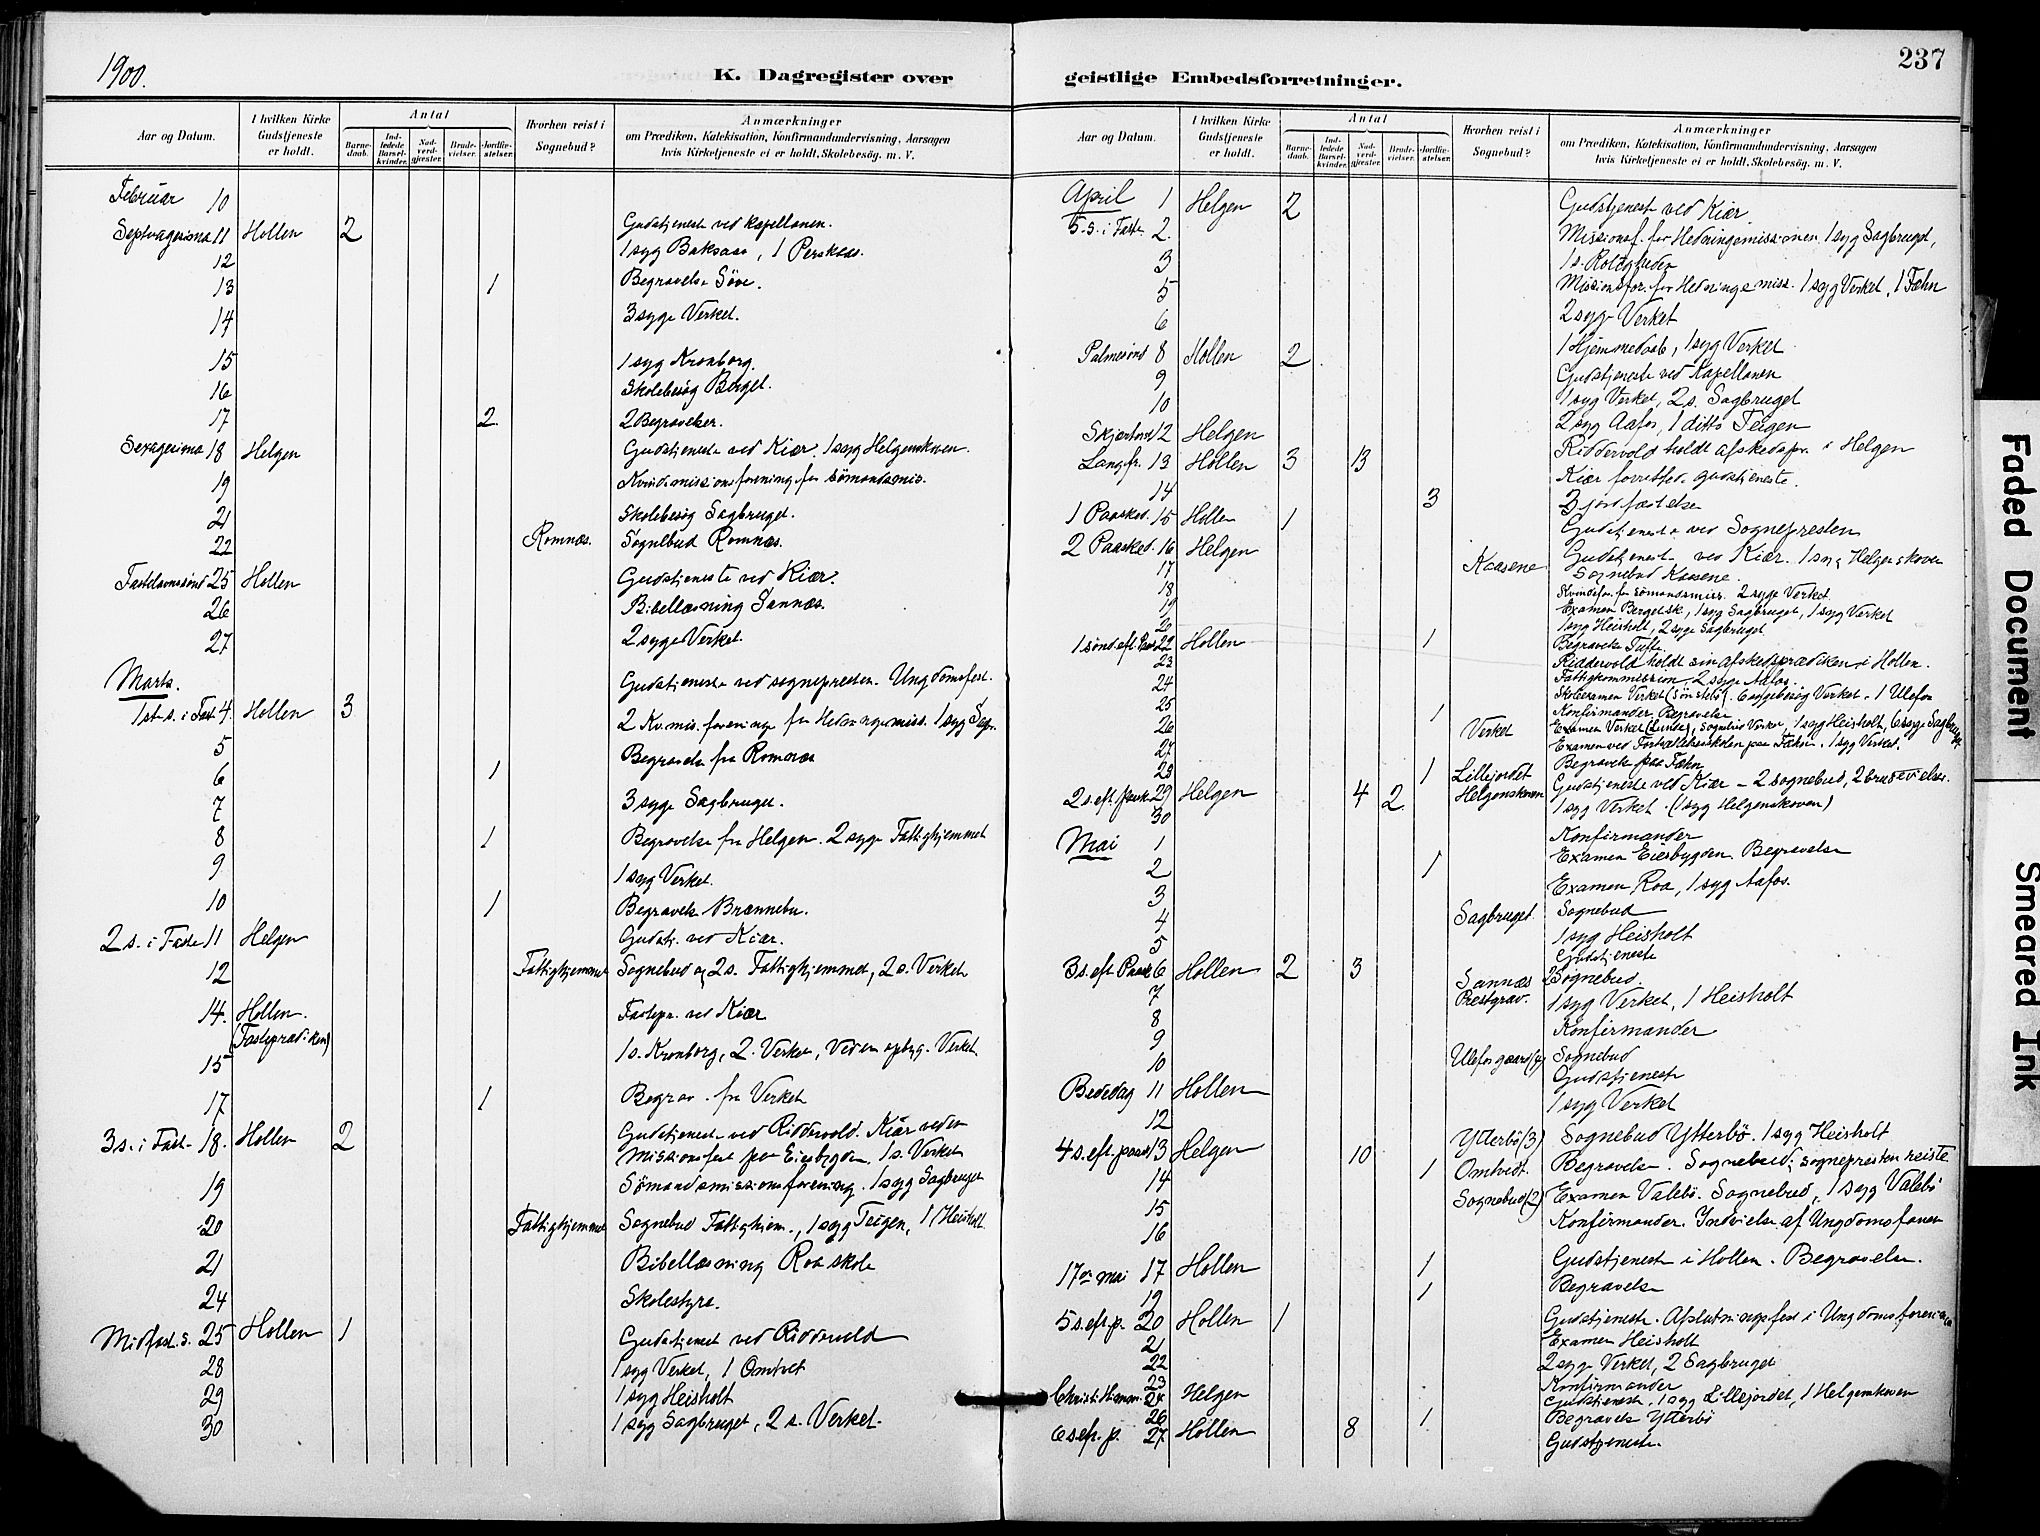 1900.
K. Dagregister over
Aar og Datum.
I hvilken Kirke Gudstjeneste er holdt.
Antal
Barne-daab.
Ind-ledede Barsel-kvinder.
Nad-verd-gjæster.
Brude-vielser.
Jordfæ-stelser.
Hvorhen reist i Sognebud?
Anmærkninger
om Prædiken, Katekisation, Konfirmandundervisning, Aarsagen
hvis Kirketjeneste ei er holdt, Skolebesög. m. V.
Februar 10
Septuagesima 11 Hollen 2 Gudstjeneste ved kapellanen.
12 1 syg Baksaas, 1 Persksaas.
13 1 Begravelse Söve.
14 3 syge Verket.
15 1 syg Kronborg.
16 Skolebesög Berget.
17 2. 2 Begravelser.
Sexagesima 18 Helgen Gudstjeneste ved Kiær. 1 syg Helgenskoven.
19 Kvindemissionsforening for sömandsmis.
21 Skolebesög Sagbruget.
22 Romnæs. Sognebud Romnæs.
Fastelavnssönd 25 Hollen Gudstjeneste ved Kiær.
26 Bibellæsning Sannæs.
27 2 syge Verket.
Marts.
1ste s. i Fast 4. Hollen 3 Gudstjeneste ved sognepresten. Ungdomsfest.
5 2 Kv.mis. foreninger for Hedningemiss. 1 syg Sagbr.
6 1 Begravelse fra Romnæs
7 3 syge Sagbruget.
8 1 Begravelse fra Helgen. 2 syge Fattighjemmet
9 1 syg Verket.
10 1 Begravelse Brænnebu.
2 s. i Faste 11 Helgen Gudstj. ved Kiær.
12 Fattighjemmet Sognebud og 2 s. Fattighjemmet, 2 s. Verket
14. Hollen. (Fasteprædiken) Fastepr. ved Kiær
15 1 s. Kronborg, 2. Verket, Videre opbyg. Verket
17 1 Begrav. fra Verket
3 s. i Fast. 18. Hollen 2 Gudstjeneste ved Riddervold. Kiær ved en
Missionsfest paa Eiesbygden. 1 s. Verket
19 Sömandsmissionsforening. 1 syg Sagbruget
20 Fattighjemmet Sognebud Fattighjem., 1 syg Teigen, 1 Heisholt
21 Bibellæsning Roa skole
24 Skolestyre.
Midfast. s. 25 Hollen 1 Gudstjenest ved Riddervold
28 1 syg Verket, 1 Omtvet
29 1 syg Heisholt
30 1 syg Sagbruget, 2 s. Verket.
237
geistlige Embedsforretninger.
Aar og Datum.
I hvilken Kirke Gudstjeneste er holdt.
Antal
Barne-daab.
Ind-ledede Barsel-kvinder.
Nad-verd-gjæster.
Brude-vielser.
Jordfæ-stelser.
Hvorhen reist i Sognebud?
Anmærkninger
om Prædiken, Katekisation, Konfirmandundervisning, Aarsagen
hvis Kirketjeneste ei er holdt, Skolebesög. m. V.
April 1 Helgen 2 Gudstjeneste ved Kiær
5. s. i Faste 2. Missionsf. for Hedningemissionen, 1 syg Sagbruget,
3 1 s. Roligheden
5 Missionsfor. for Hedningemiss. 1 syg Verket, 1 Fæhn
6 2 syge Verket
1 Hjemmedaab, 1 syg Verket
Palmesönd 8 Hollen 2 Gudstjeneste ved Kapellanen
9 1 syg Verket, 2 s. Sagbruget
10 2 syg Aafos, 1 ditto Teigen
Skjærtorsd 12 Helgen Riddervold holdt afskedspr. i Helgen
Langfr. 13 Hollen 3 13 Kiær forrettede gudstjeneste.
14 3 3 jordfæstelser
1 Paasked. 15 Hollen 1 Gudstjeneste ved Sognepresten
2 Paasked. 16 Helgen Gudstjenest ved Kiær. 1 syg Helgenskoven
17 Kaasene Sognebud Kaasene.
18 Kvindefor. for sömandsmiss. 2 syge Verket
19 Examen Berget sk., 1 syg Sagbruget, 1 syg Verket
20 1 syg Heisholt, 2 syge Sagbruget
1 sönd. eft. Paas 22 Hollen 1 Begravelse Tufte
23 Riddervold holdt sin afskedsprædiken i Hollen.
24 Fattigkommission. 2 syge Aafos.
25 Verket 1 Ulefos
26 1 Verket Konfirmander. Begravelse
27 Examen Verket (Lunde), Sognebud Verket, 1 syg Heisholt, 6 syge Sagbruget
28 1 Lillejordet Begravelse paa Fæhn
2 s. eft. Paask 29 Helgen 4 2 Helgenskoven Gudstjeneste ved Kiær – 2 sognebud, 2 brudevielser.
30 1 syg Verket. (1 syg Helgenskoven)
Mai 1 Konfirmander
2 1 Examen Eiesbygden. Begravelse
3 Examen Roa, 1 syg Aafos.
4 Sagbruget Sognebud
5 1 syg Heisholt
3 s. eft Paask 6 Hollen 2 3 Gudstjeneste
7 Sannæs Prestgrav. 2 Sognebud.
8 1 syg Verket, 1 Heisholt
9 Konfirmander
10 Ulefos gaard (4) Sognebud
Bededag 11 Hollen Gudstjeneste
12 1 syg Verket
4 s. eft. paask 13 Helgen 10 Ytterbö (3) Sognebud Ytterbö. 1 syg Heisholt
14 1 Omtvedt. Begravelse. Sognebud; sognepresten reiste
15 Sognebud (2) Examen Valebö. Sognebud, 1 syg Valebö
16 Konfirmander. Indvielse af Ungdomsfanen
17de mai 17 Hollen 1 Gudstjeneste i Hollen. Begravelse.
19 1 Begravelse
5 s. eft. p. 20 Hollen 1 Gudstjeneste. Afslutningsfest i Ungdomsforeningen
21 Examen Heisholt
22 2 syge Verket, 2 Sagbruget
23 Konfirmander
Christi Himm. 24 Helgen Gudstjeneste. 1 syg Lillejordet, 1 Helgenskoven
26 1 Begravelse Ytterbö
6 s. eft. p. 27. Hollen 8 Gudstjeneste.
Faded Document
Smeared Ink